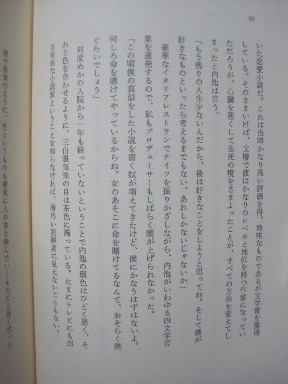 60
いた恋愛小説だ。これは当時かなり高い評価を得、地味なものであるが文学賞を獲得
している。そのままいけば、文壇で彼はかなりのレベルと地位を持つ作家になってい
ただろうが、心臓を悪くして生死の境をさまよったことが、すべての方向を変えてし
まったと内池は言う。
「もう残りの人生少ないんだから、後は好きなことをしようと思ってね。そして僕が
好きなものといったら考えるまでもない、あれしかないじゃないか」
豪華なイタリアレストランでナイフを振りかざしながら、内池がいわゆる四文字言
葉を連発するので、私もプロデューサーもしばらく顔が上げられなかった。
「この頃僕の真似をした小説を書く奴が増えてきたけど、僕にかなうはずはないよ。
何しろ命を賭けてやっているからね。女のあそこに命を賭けてるなんて、おそらく僕
ぐらいでしょう」
何度めかの入院から一年も経っていないということで内池の顔色はひどく悪く、そ
れと色を合わせるように、三白眼気味の目は茶色に濁っている。たまにテレビにも出
る有名な小説家ということを知らなければ、薄汚い犯罪者に見えないこともない。